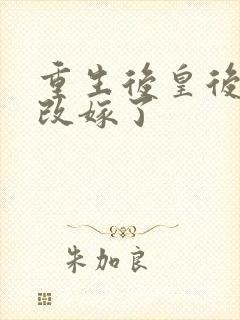 重生後皇後
改嫁了
朱加良